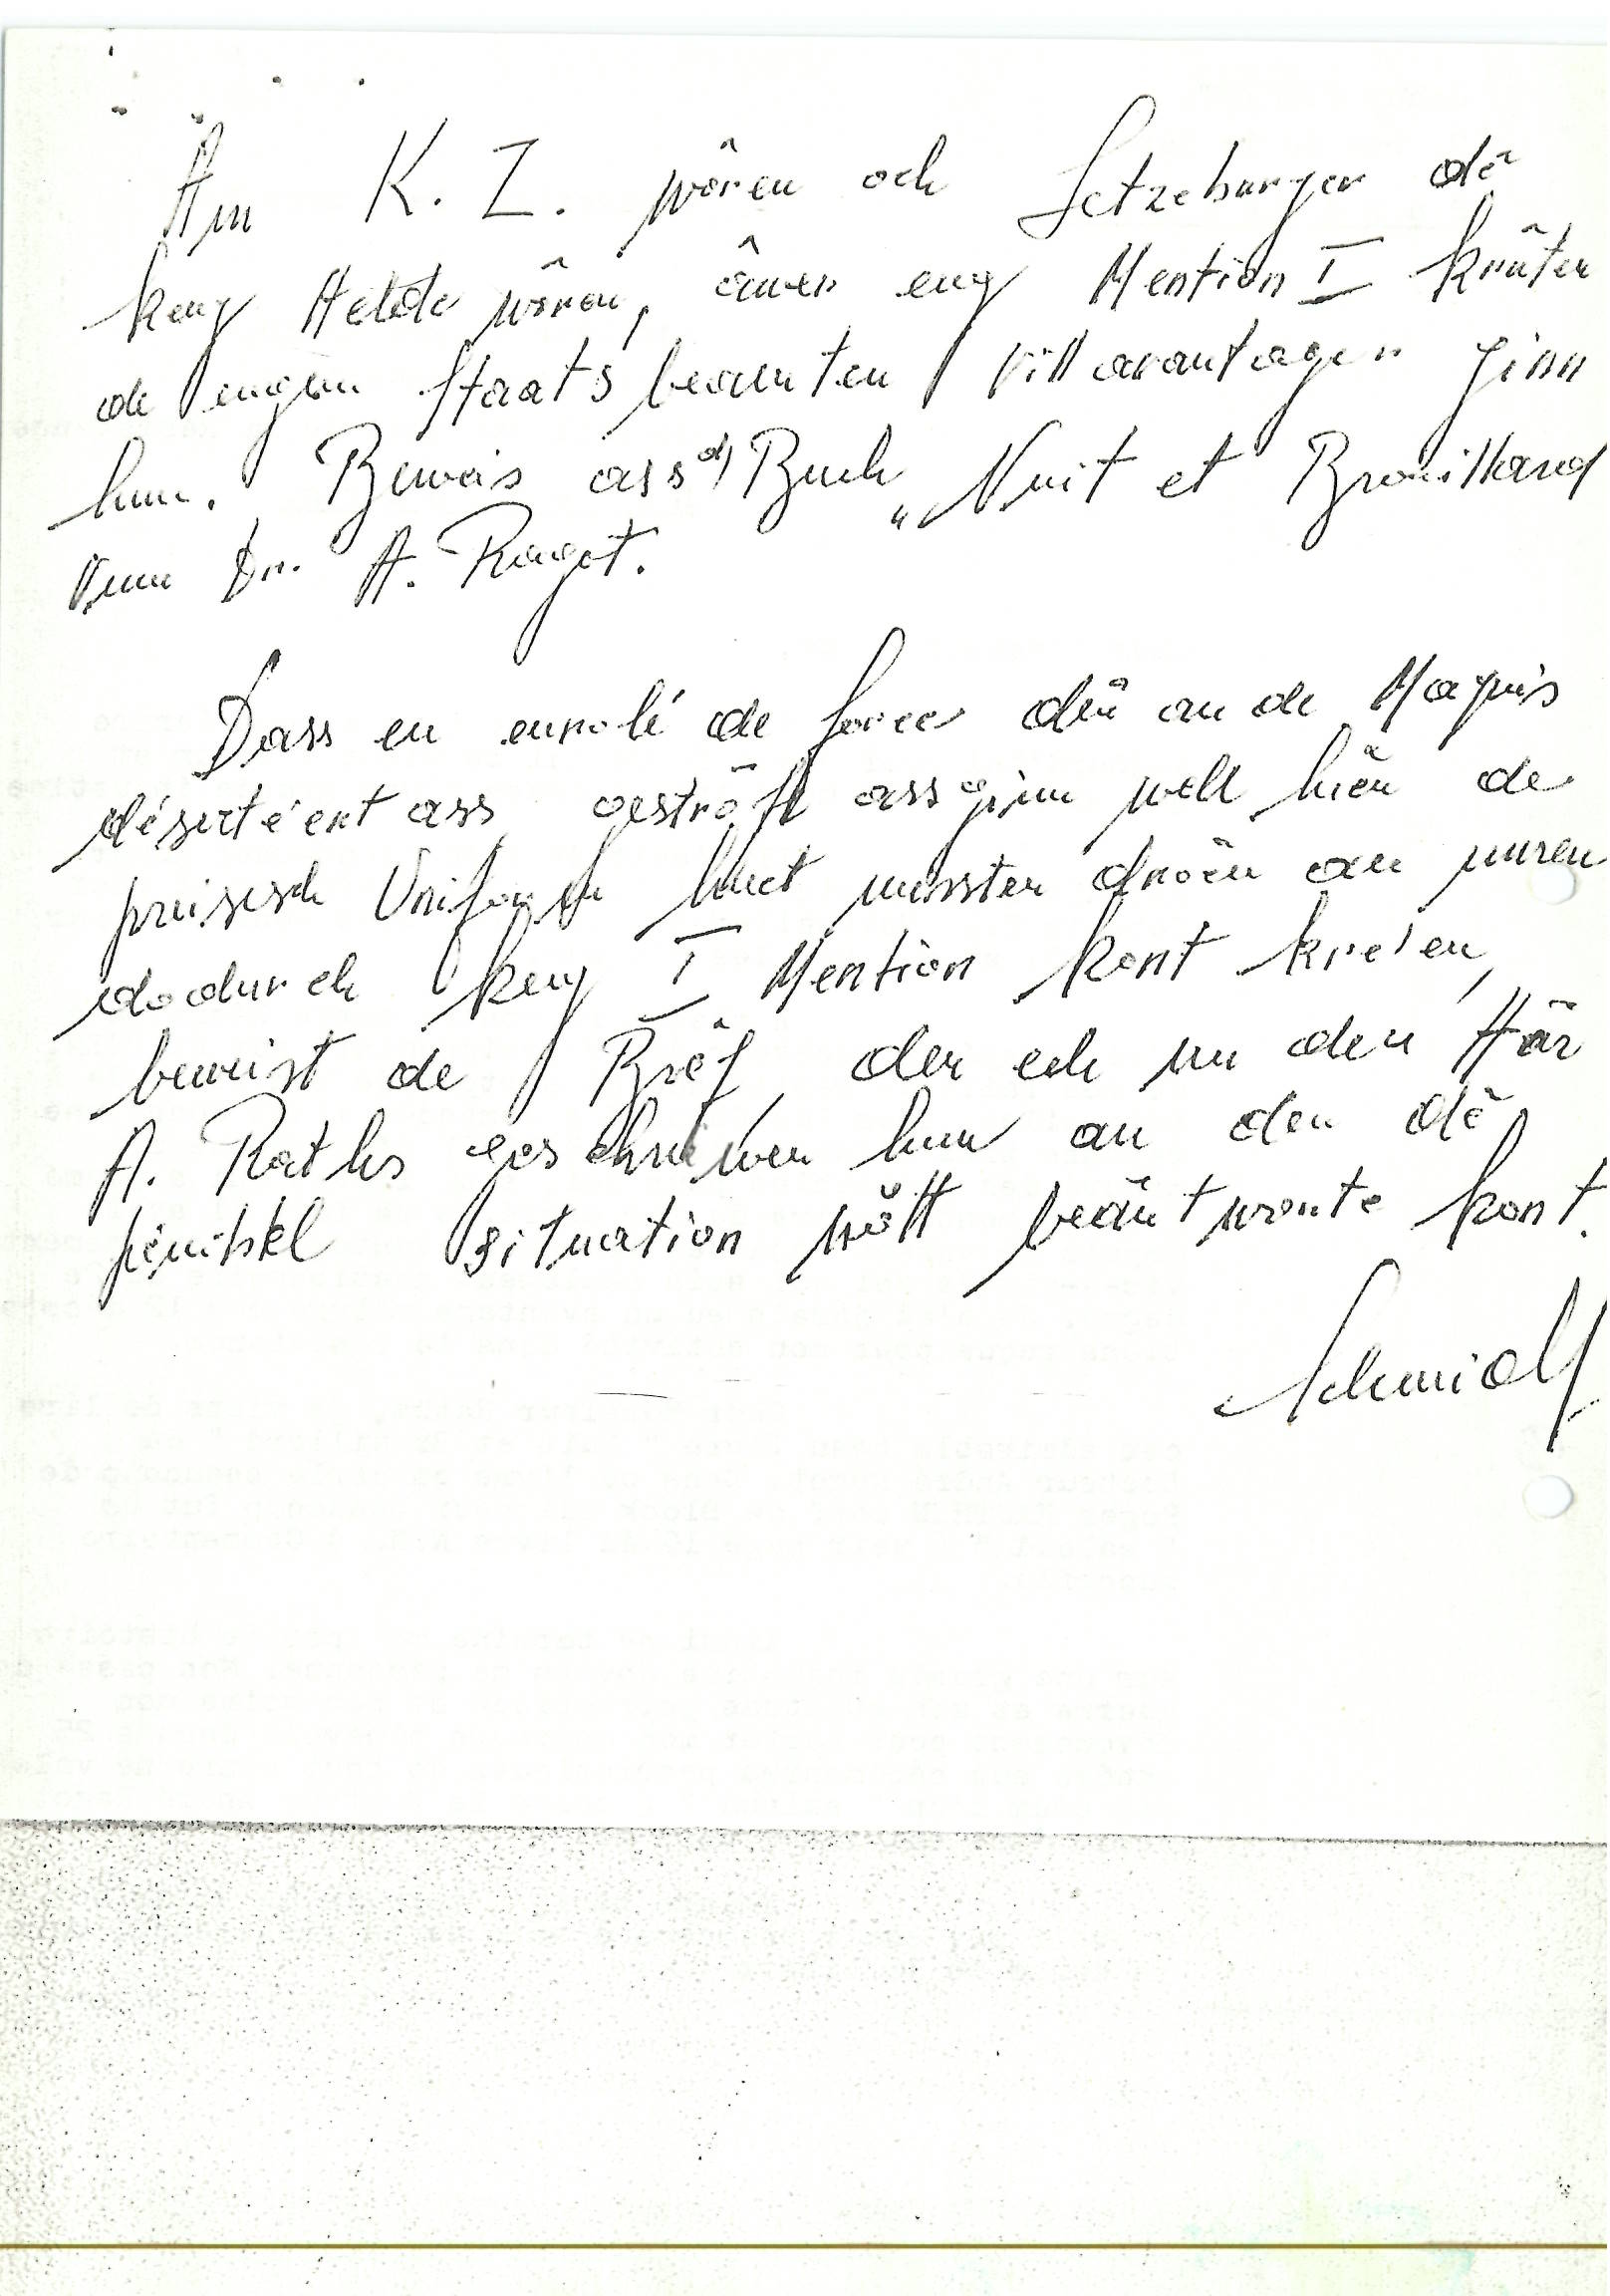 Äm K. Z. wôren och Letzeburger dê
keng Helde wôren, âwer eng Mention I krûten
de engem Staatsbeamten vill avantagen ginn
hun. Beweis ass d'Buch „Nuit et Brouillard
vum Dr. A. Raugot.
Dass en enrolé de force dên an de Maquis
désertéert ass gestrôft ass ginn well hien de
preisesch Uniform huet mussten droën an muren
dodurch keng I Mention kont kre'en,
beweist de Brêf, den ech un den Här
A. Raths geschriwen hun an den dê
penibel situation nŏtt beäntworte kont.
Schmidt